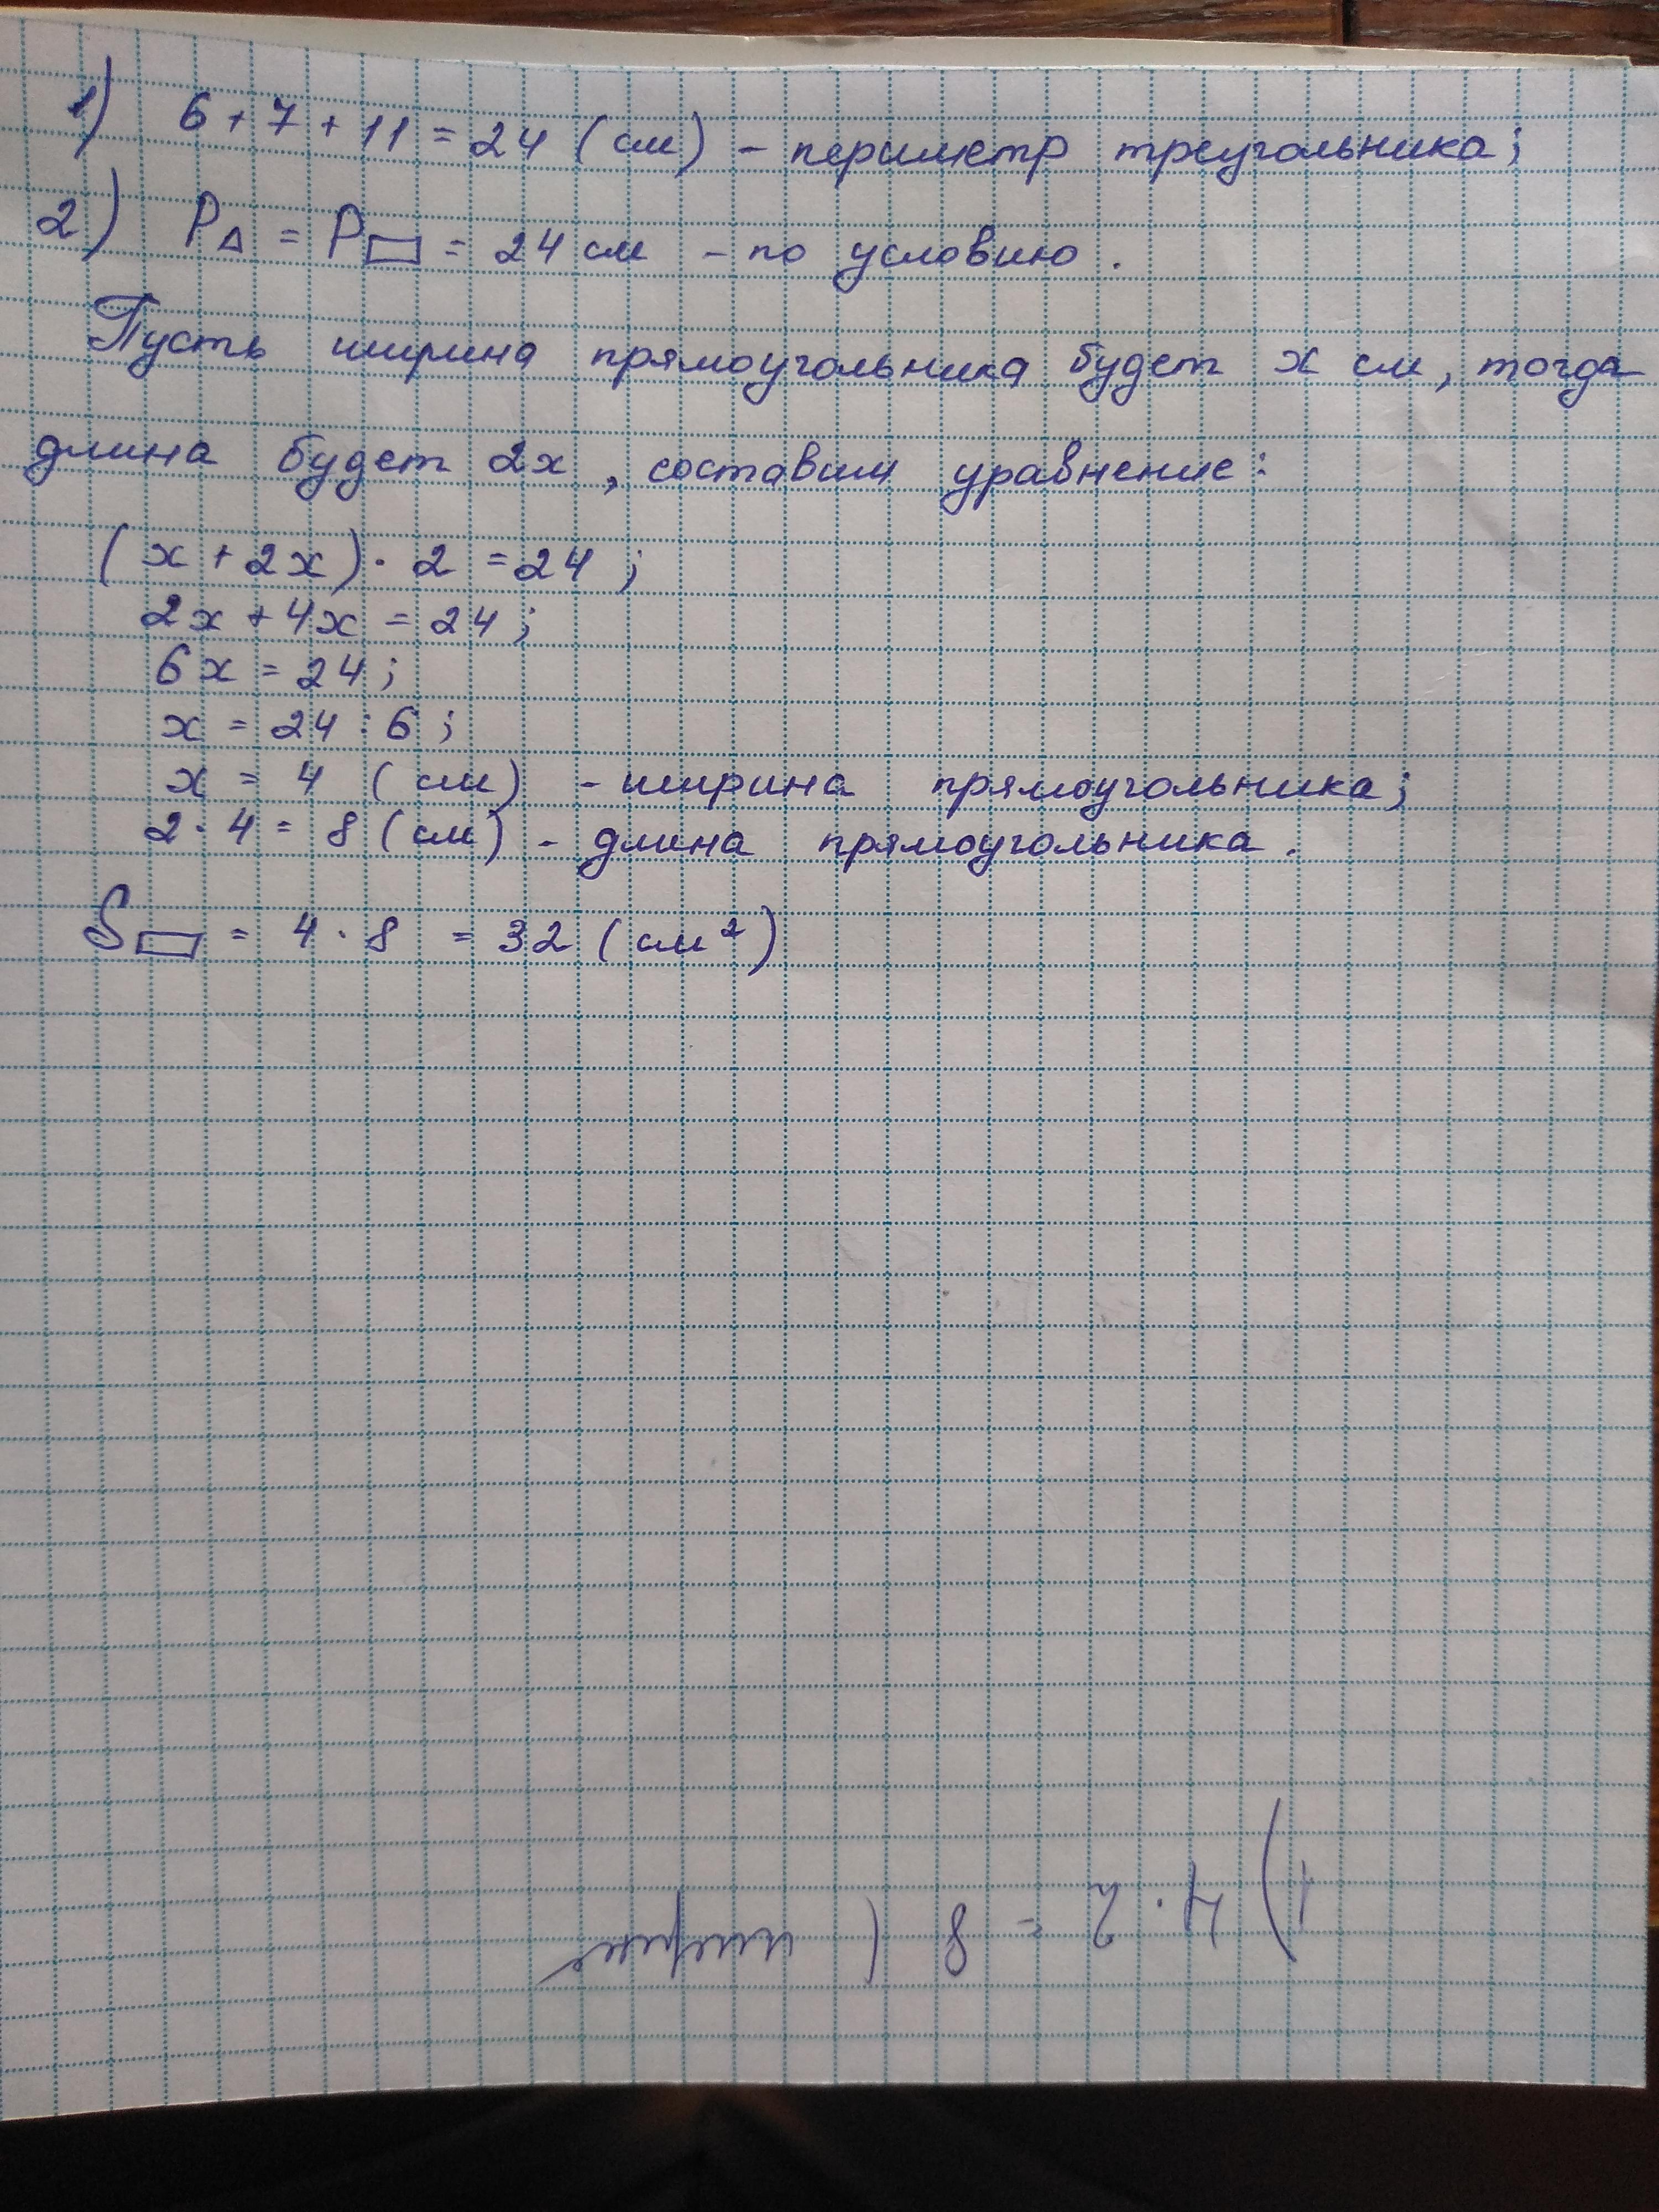 1) 6 + 7 + 11 = 24 (см) - периметр треугольника;
2) P△ = P▭ = 24 см - по условию.
Пусть ширина прямоугольника будет x см, тогда
длина будет 2x, составим уравнение:
(x + 2x) · 2 = 24;
2x + 4x = 24;
6x = 24;
x = 24 : 6;
x = 4 (см) - ширина прямоугольника;
2 · 4 = 8 (см) - длина прямоугольника.
S▭ = 4 · 8 = 32 (см²)
1) 4 · 2 = 8 (